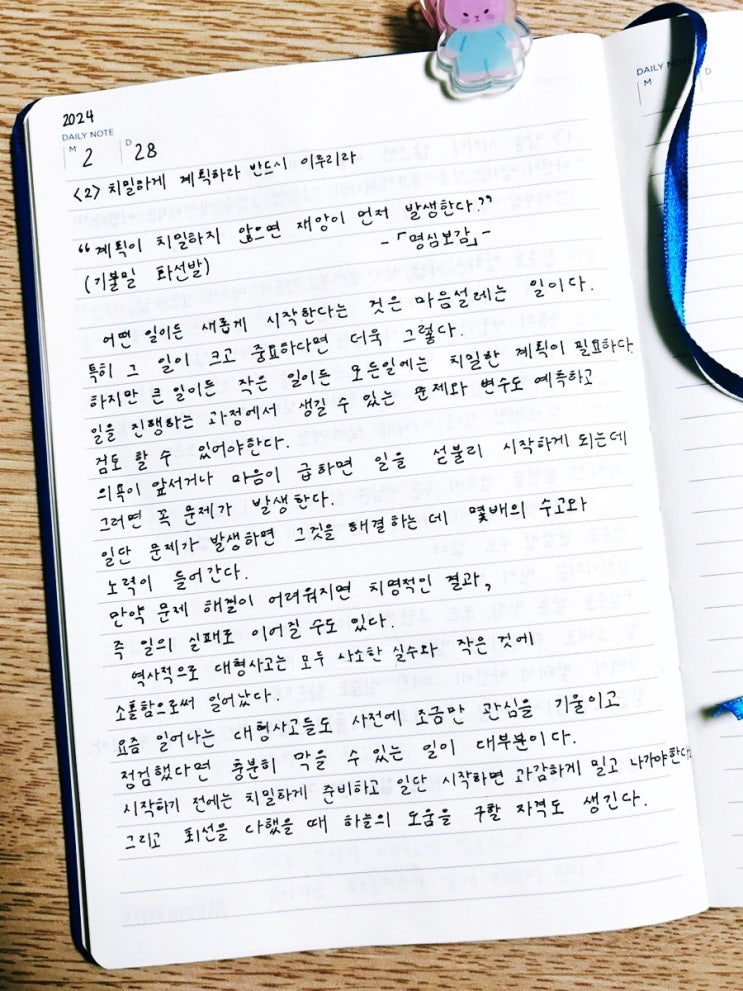 2024
DAILY NOTE
M 2 D 28
<2> 치밀하게 계획하라 반드시 이루리라
“계획이 치밀하지 않으면 재앙이 먼저 발생한다.”
-「명심보감」-
(기불밀 화선발)
어떤 일이든 새롭게 시작한다는 것은 마음설레는 일이다.
특히 그 일이 크고 중요하다면 더욱 그렇다.
하지만 큰 일이든 작은 일이든 모든일에는 치밀한 계획이 필요하다.
일을 진행하는 과정에서 생길 수 있는 문제와 변수도 예측하고
검토 할 수 있어야한다.
의욕이 앞서거나 마음이 급하면 일을 섣불리 시작하게 되는데
그러면 꼭 문제가 발생한다.
일단 문제가 발생하면 그것을 해결하는데 몇배의 수고와
노력이 들어간다.
만약 문제 해결이 어려워지면 치명적인 결과,
즉 일의 실패로 이어질 수도 있다.
역사적으로 대형사고는 모두 사소한 실수와 작은 것에
소홀함으로써 일어났다.
요즘 일어나는 대형사고들도 사전에 조금만 관심을 기울이고
점검했다면 충분히 막을 수 있는 일이 대부분이다.
시작하기 전에는 치밀하게 준비하고 일단 시작하면 과감하게 밀고 나가야한다.
그리고 최선을 다했을 때 하늘의 도움을 구할 자격도 생긴다.
DAILY NOTE
M D